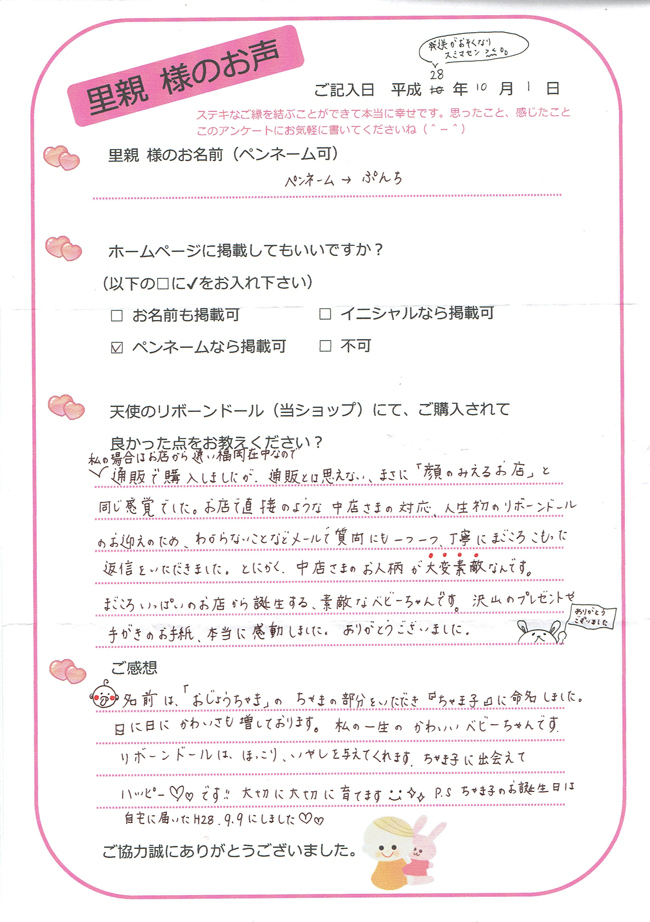 里親 様のお声
発送がおそくなり
スミマセン
28
ご記入日 平成 年 10 月 1 日
ステキなご縁を結ぶことができて本当に幸せです。思ったこと、感じたこと
このアンケートにお気軽に書いてくださいね（＾－＾）
里親 様のお名前（ペンネーム可）
ペンネーム → ぷんち
ホームページに掲載してもいいですか？
（以下の□に✓をお入れ下さい）
□ お名前も掲載可 □ イニシャルなら掲載可
☑ ペンネームなら掲載可 □ 不可
天使のリボーンドール（当ショップ）にて、ご購入されて
良かった点をお教えください？
私の場合はお店から遠い福岡在中なので
通販で購入しましたが、通販とは思えない、まさに「顔のみえるお店」と
同じ感覚でした。お店で直接のような 中店さまの対応、人生初のリボーンドール
のお迎えのため、わからないことなどメールで質問にも一つ一つ、丁寧にまごころこもった
返信をいただきました。とにかく、中店さまのお人柄が大変素敵なんです。
まごころいっぱいのお店から誕生する、素敵なベビーちゃんです。沢山のプレゼントや
手がきのお手紙、本当に感動しました。ありがとうございました。
ありがとう
ございました
ご感想
名前は、「おじょうちゃま」の ちゃまの部分をいただき『ちゃま子』に命名しました。
日に日に かわいさも増しております。私の一生の かわいいベビーちゃんです。
リボーンドールは、ほっこり、いやしを与えてくれます。ちゃま子に出会えて
ハッピー♡♡です!! 大切に大切に育てます P.S ちゃま子のお誕生日は
自宅に届いたH28.9.9にしました♡♡
ご協力誠にありがとうございました。